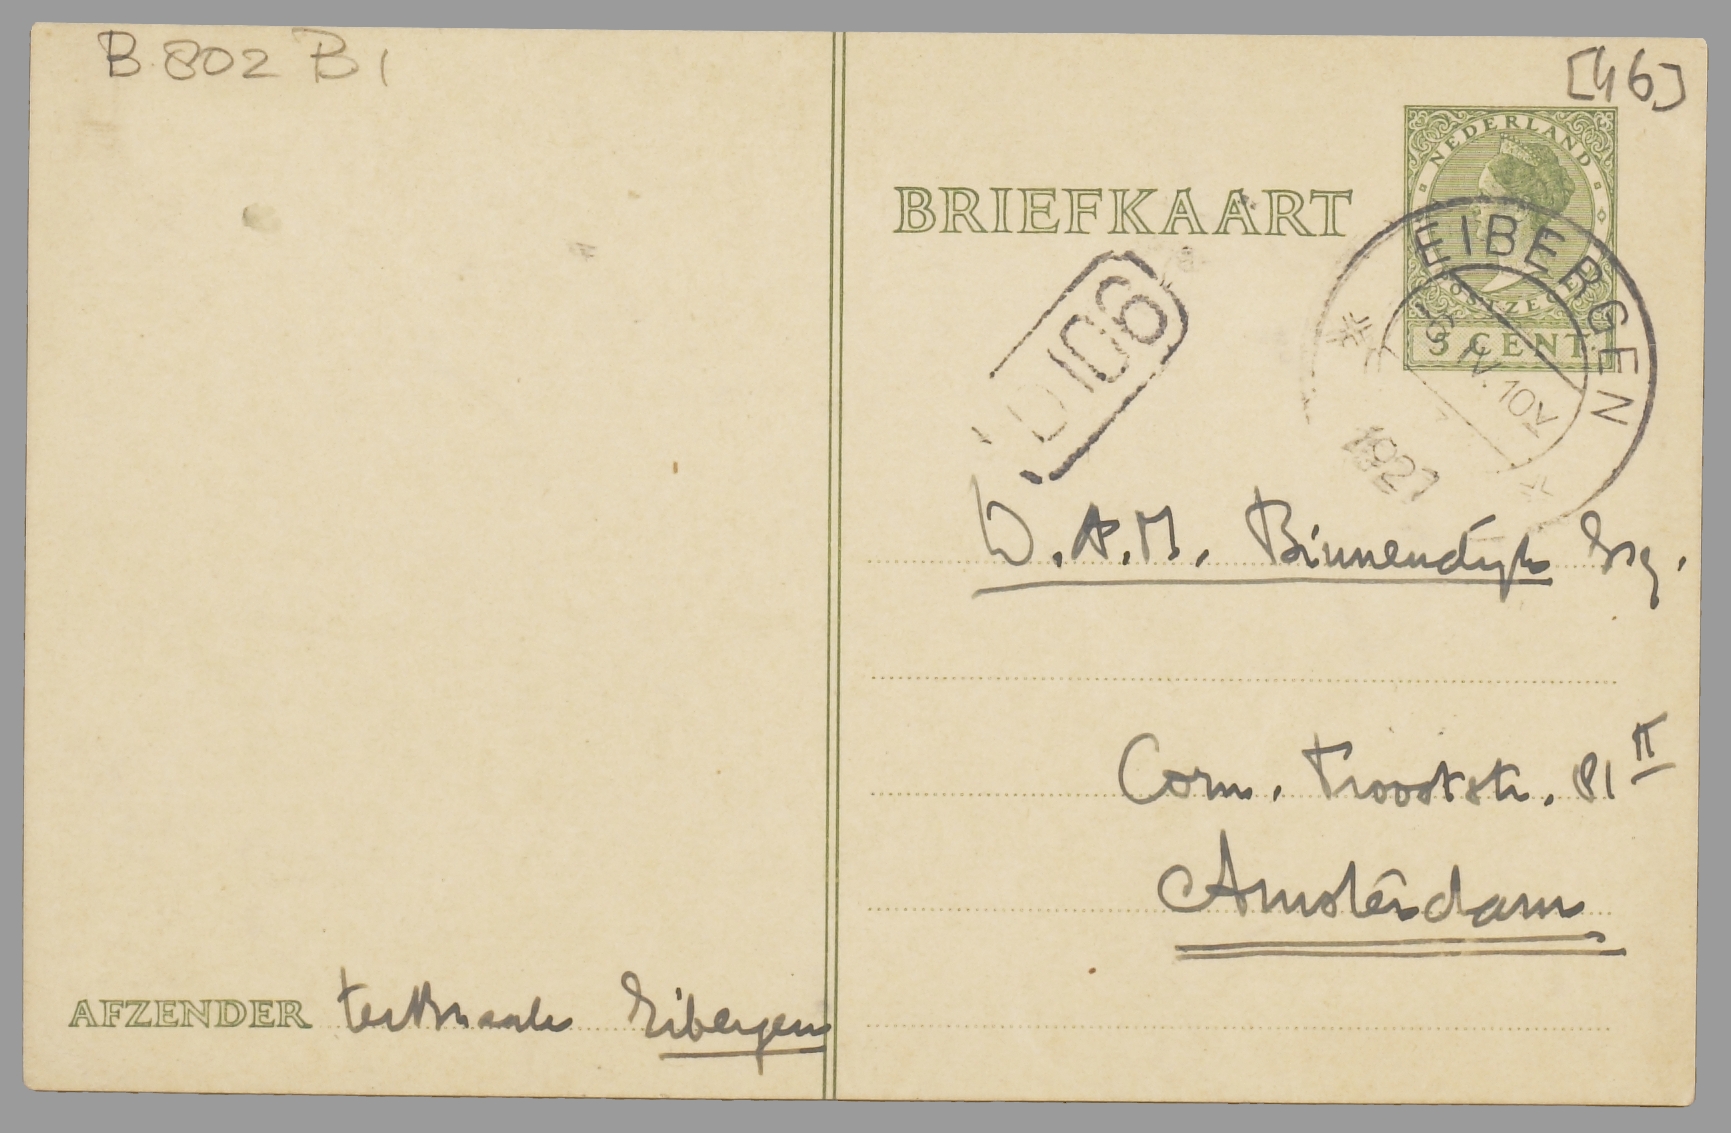 B 802 B1
[46]
NEDERLAND
POSTZEGEL
3 CENT
BRIEFKAART
EIBERGEN
IV. 10V
1927
D106
D.A.M. Binnendijk Esq.
Corn. Trooststr. 81 II
Amsterdam
AFZENDER ter Braak Eibergen